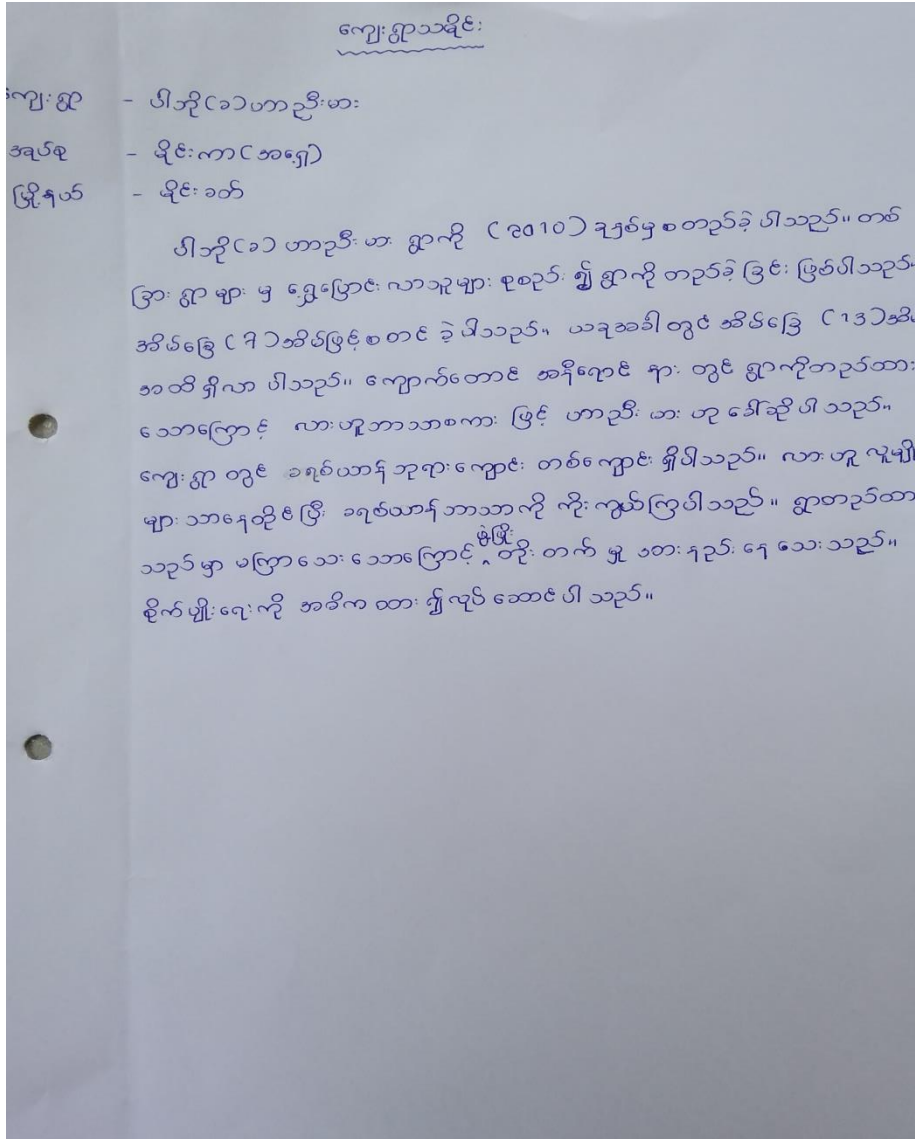 ကျေးရွာသမိုင်း
ကျေးရွာ - ပါဘို(ခ)ဟာညီးမား
အုပ်စု - မိုင်းကာ(အရှေ့)
မြို့နယ် - မိုင်းခတ်
ပါဘို(ခ) ဟာညီးမား ရွာကို (2010) ခုနှစ်မှ စတည်ခဲ့ပါသည်။ တစ်
ခြား ရွာများ မှ ရွှေ့ပြောင်းလာသူများ စုစည်း၍ ရွာကို တည်ခဲ့ခြင်း ဖြစ်ပါသည်။
အိမ်ခြေ (7) အိမ်ဖြင့် စတင်ခဲ့ပါသည်။ ယခုအခါတွင် အိမ်ခြေ (13)အိမ်
အထိ ရှိလာပါသည်။ ကျောက်တောင် အနီရောင် နား တွင် ရွာကိုတည်ထား
သောကြောင့် လားဟူဘာသာစကား ဖြင့် ဟာညီးမား ဟု ခေါ်ဆိုပါသည်။
ကျေးရွာတွင် ခရစ်ယာန် ဘုရားကျောင်း တစ်ကျောင်း ရှိပါသည်။ လားဟူ လူမျိုး
များ သာနေထိုင်ပြီး ခရစ်ယာန်ဘာသာကို ကိုးကွယ်ကြပါသည်။ ရွာတည်ထား
သည်မှာ မကြာသေးသောကြောင့် ဖွံ့ဖြိုးတိုးတက်မှု အားနည်းနေသေးသည်။
စိုက်ပျိုးရေးကို အဓိကထား၍ လုပ်ဆောင်ပါသည်။